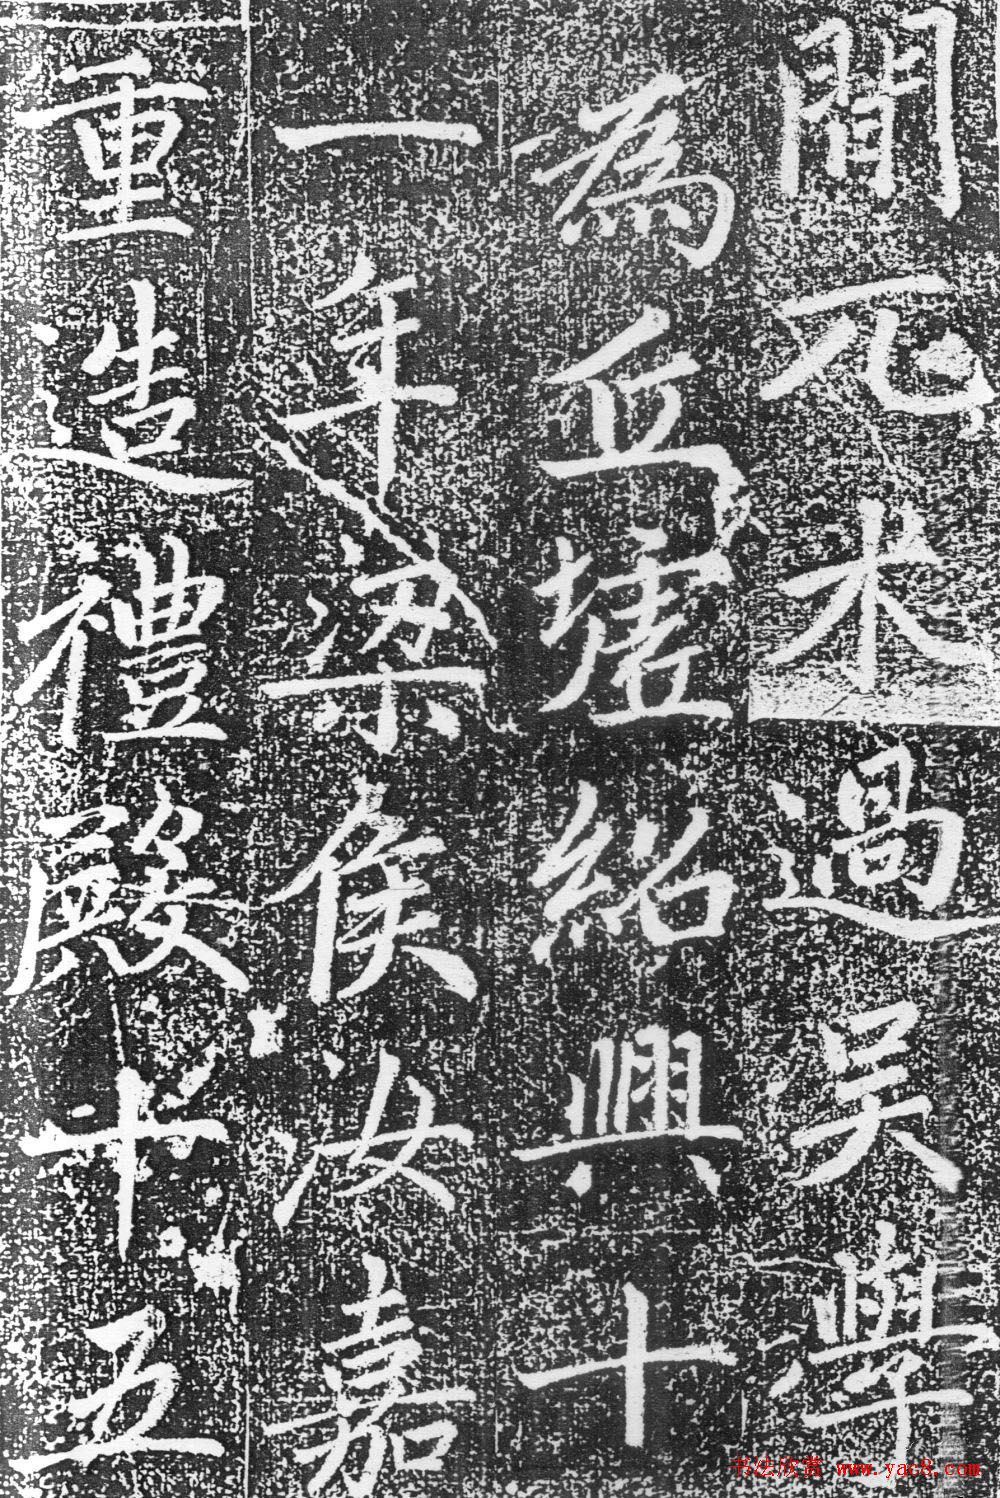 間兀朮過吳學
為丘墟紹興十
一年梁侯汝嘉
重造禮殿十五
书法欣赏 www.yac8.com